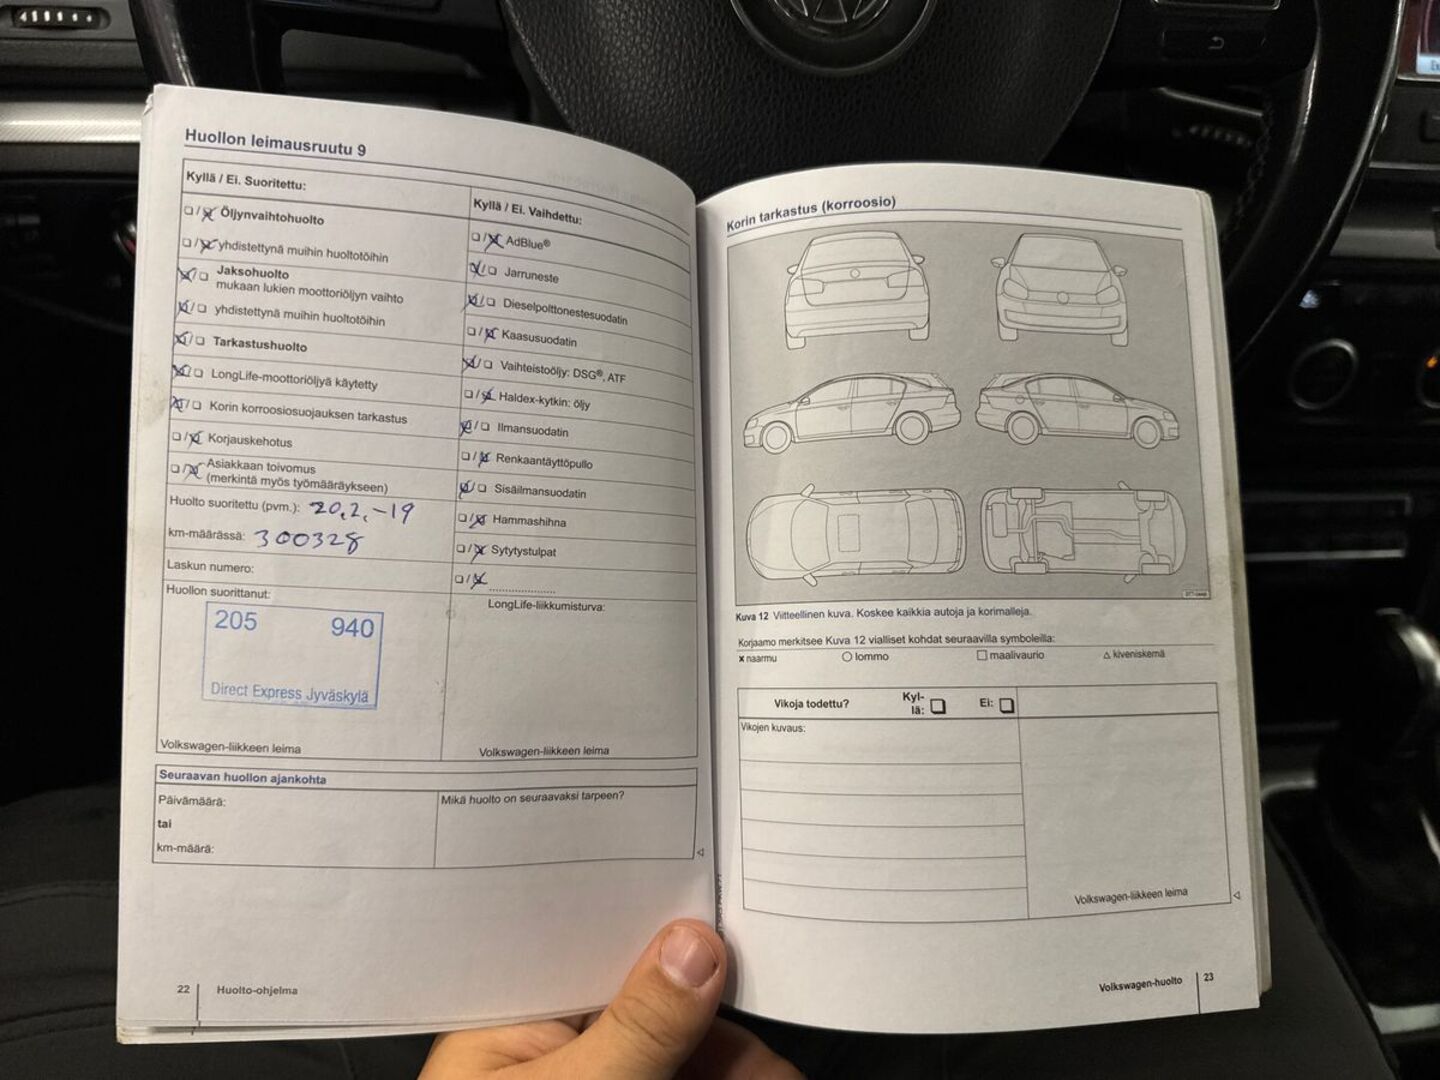 Huollon leimausruutu 9
Kyllä / Ei. Suoritettu:
❑/❑ Öljynvaihtohuolto
❑/❑ yhdistettynä muihin huoltotöihin
❑/❑ Jaksohuolto
mukaan lukien moottoriöljyn vaihto
❑/❑ yhdistettynä muihin huoltotöihin
❑/❑ Tarkastushuolto
❑/❑ LongLife-moottoriöljyä käytetty
❑/❑ Korin korroosiosuojauksen tarkastus
❑/❑ Korjauskehotus
❑/❑ Asiakkaan toivomus
(merkintä myös työmääräykseen)
Huolto suoritettu (pvm.): 20.2.-19
km-määrässä: 300328
Laskun numero:
Huollon suorittanut:
205 940
Direct Express Jyväskylä
Volkswagen-liikkeen leima
Kyllä / Ei. Vaihdettu:
❑/❑ AdBlue®
❑/❑ Jarruneste
❑/❑ Dieselpolttonestesuodatin
❑/❑ Kaasusuodatin
❑/❑ Vaihteistoöljy: DSG®, ATF
❑/❑ Haldex-kytkin: öljy
❑/❑ Ilmansuodatin
❑/❑ Renkaantäyttöpullo
❑/❑ Sisäilmansuodatin
❑/❑ Hammashihna
❑/❑ Sytytystulpat
❑/❑ ....................
LongLife-liikkumisturva:
Volkswagen-liikkeen leima
Seuraavan huollon ajankohta
Päivämäärä:
tai
km-määrä:
Mikä huolto on seuraavaksi tarpeen?
22 Huolto-ohjelma
Korin tarkastus (korroosio)
Kuva 12 Viitteellinen kuva. Koskee kaikkia autoja ja korimalleja.
Korjaamo merkitsee Kuva 12 vialliset kohdat seuraavilla symboleilla:
x naarmu ○ lommo □ maalivaurio △ kiveniskemä
Vikoja todettu? Kyl-
lä: ❑ Ei: ❑
Vikojen kuvaus:
Volkswagen-liikkeen leima
Volkswagen-huolto 23